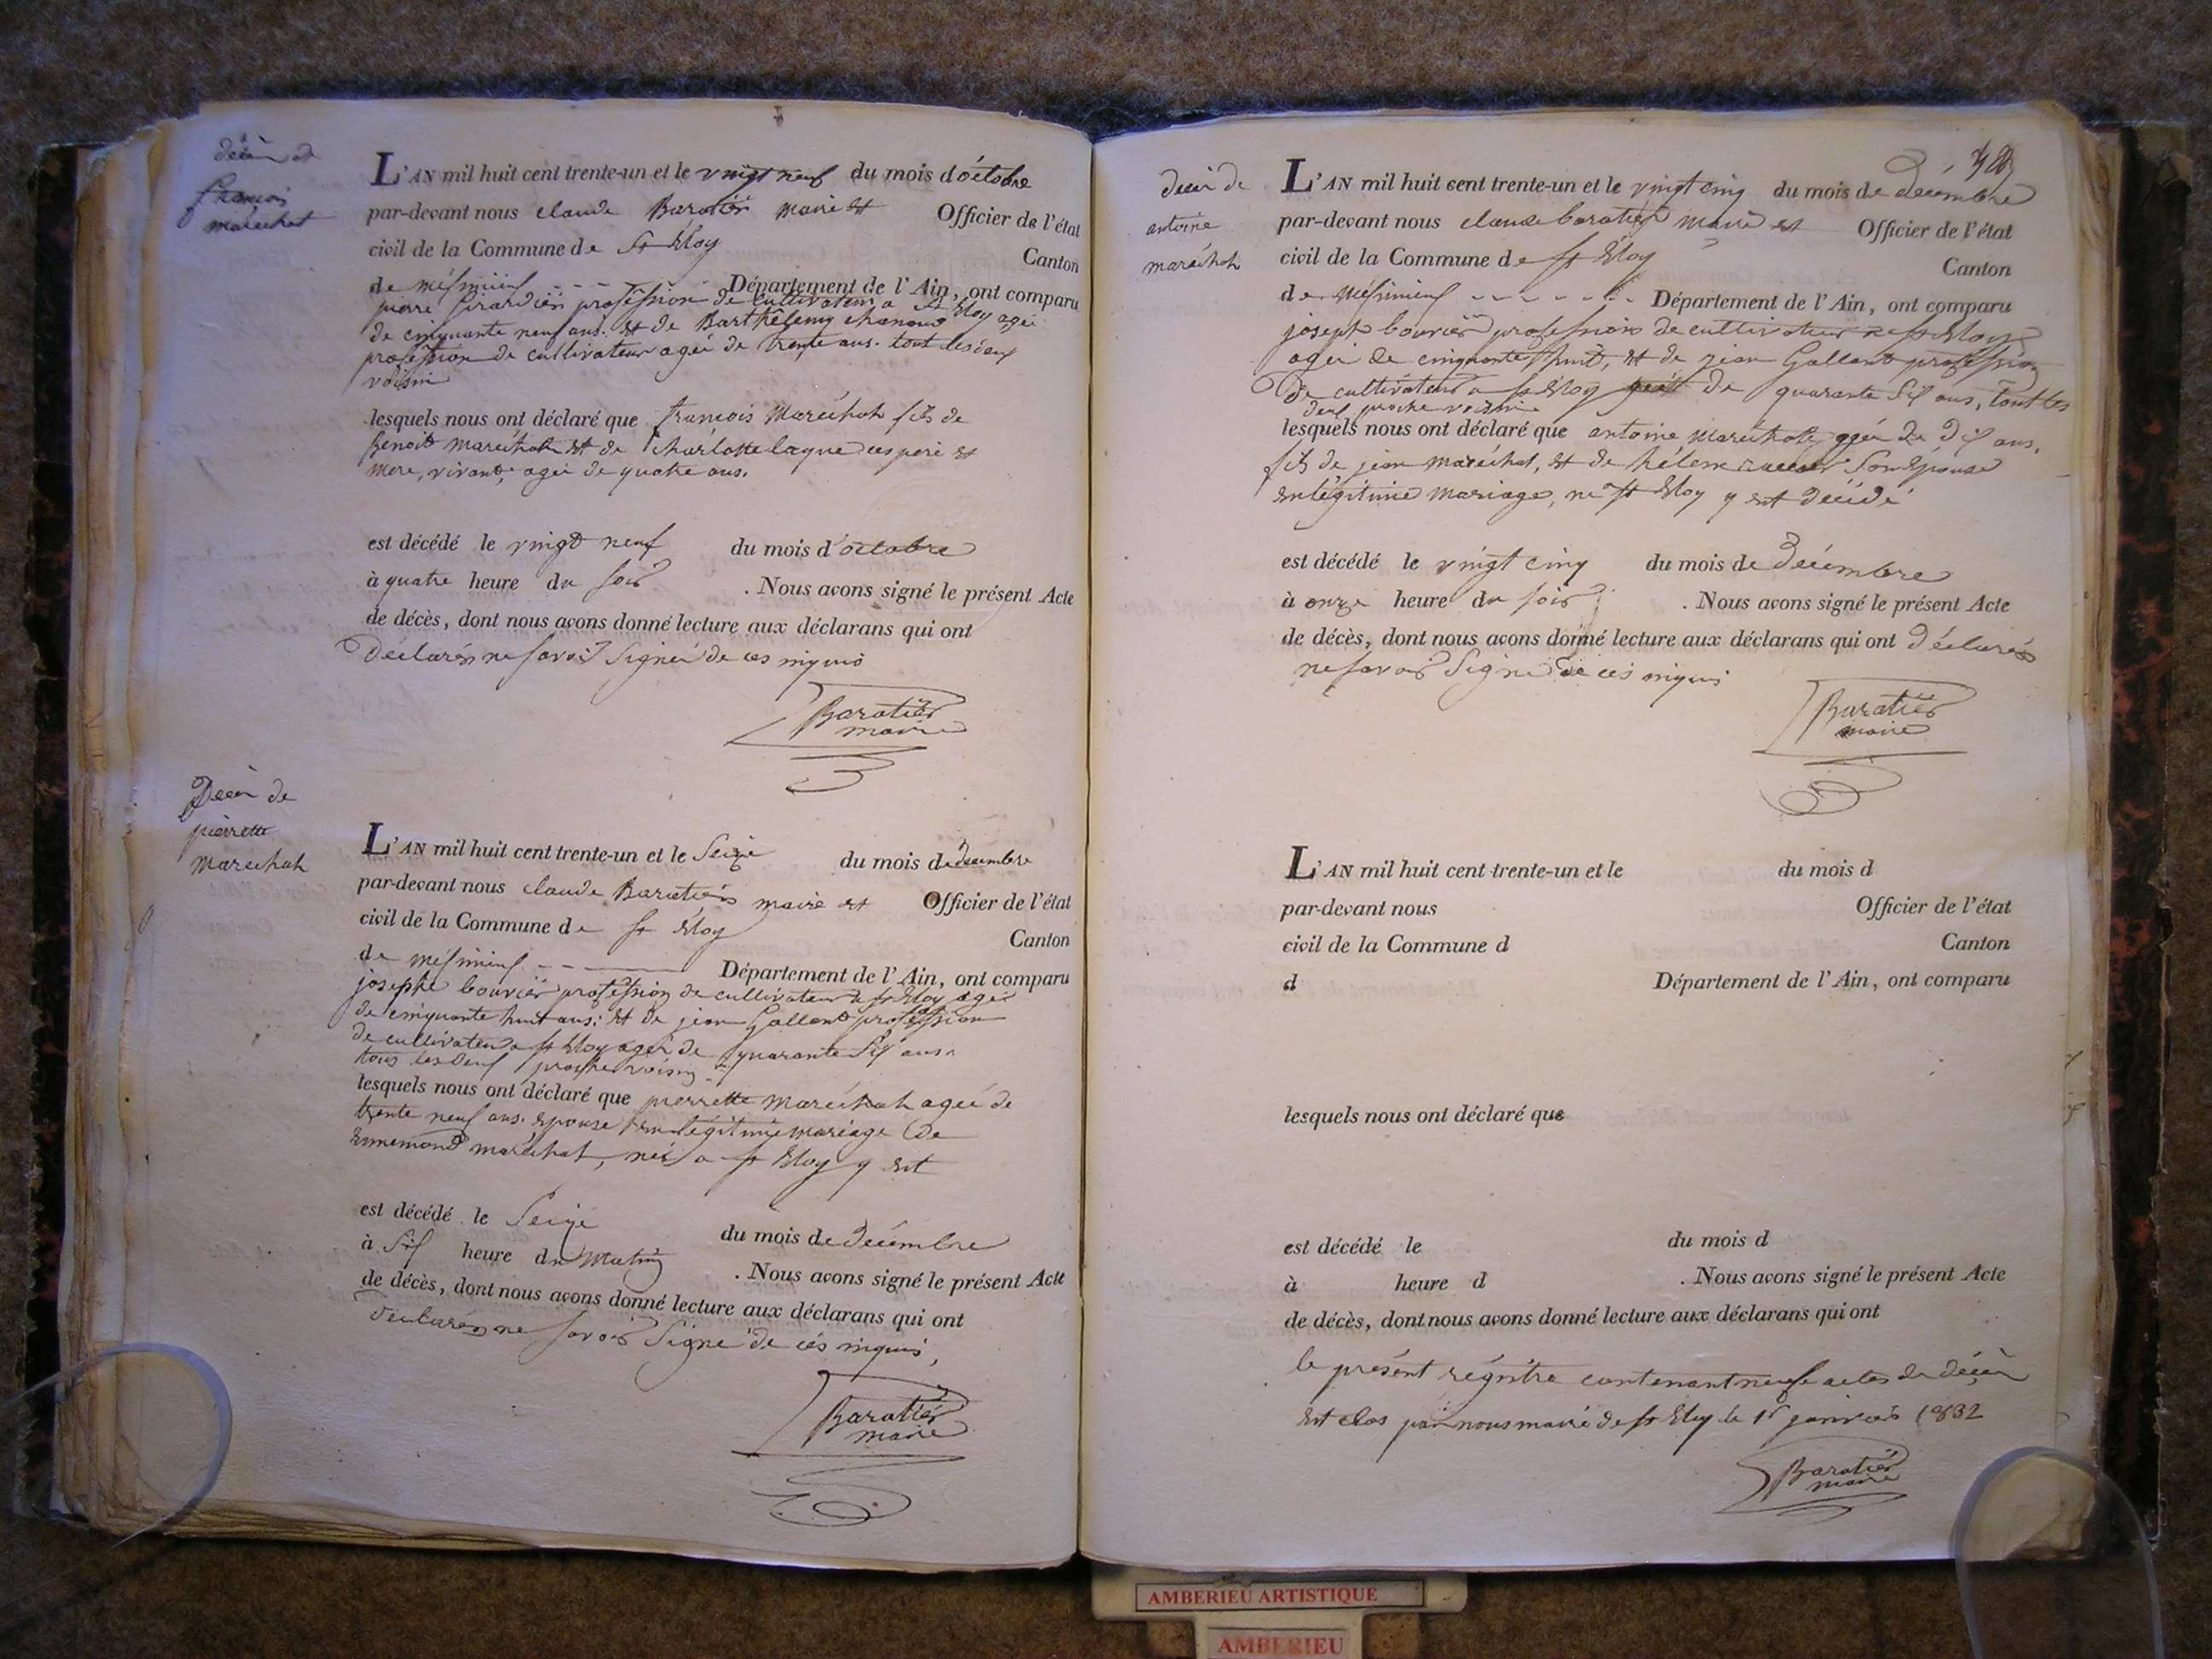 décès de
francois
maréchat
L'AN mil huit cent trente-un et le vingt neuf du mois d'octobre
par-devant nous claude Baratier maire et Officier de l'état
civil de la Commune de St Eloy Canton
de mésimieux - - - - Département de l'Ain, ont comparu
pierre Girardier profession de cultivateur a St Eloy agéé
de cinquante neuf ans. et de Barthêlemy
profession de cultivateur agéé de trente ans. tout les deux
voisin
lesquels nous ont déclaré que francois Maréchat fils de
Benoit maréchat et de charlotte ces pere et
mere, vivant, agéé de quatre ans.
est décédé le vingt neuf du mois d'octobre
à quatre heure du soir . Nous avons signé le présent Acte
de décès, dont nous avons donné lecture aux déclarans qui ont
déclarés ne savoir signéé de ces
Baratier
maire
Décès de
pierrette
marechat
L'AN mil huit cent trente-un et le seize du mois de decembre
par-devant nous claude Baratier maire et Officier de l'état
civil de la Commune de St Eloy Canton
de mésimieux - - Département de l'Ain, ont comparu
josephe bouvier profession de cultivateur a St Eloy agéé
de cinquante huit ans: et de jean Gallant profession
de cultivateur a St Eloy agéé de quarante six ans
tous les deux proche voisin
lesquels nous ont déclaré que pierrette maréchat agéé de
trente neuf ans. epouse en légitime mariage de
Ennemond maréchat, néé a St Eloy y est
est décédé le seize du mois de décembre
à six heure du matin . Nous avons signé le présent Acte
de décès, dont nous avons donné lecture aux déclarans qui ont
déclarés ne savoir signé de cés
Baratier
maire
48
décès de
antoine
maréchat
L'AN mil huit cent trente-un et le vingt cinq du mois de décembre
par-devant nous claude baratier maire et Officier de l'état
civil de la Commune de St Eloy Canton
de mésimieux - - - - - Département de l'Ain, ont comparu
joseph bouvier profession de cultivateur a St Eloy
agéé de cinquante huit, et de jean Gallant profession
de cultivateur a St Eloy de quarante six ans, tout les
deux proche voisin
lesquels nous ont déclaré que antoine maréchat agéé de dix ans,
fils de jean maréchat, et de hélene son épouse
en légitime mariage, né St Eloy y est décédé
est décédé le vingt cinq du mois de décembre
à onze heure du soir . Nous avons signé le présent Acte
de décès, dont nous avons donné lecture aux déclarans qui ont déclarés
ne savoir signé de cés
Baratier
maire
L'AN mil huit cent trente-un et le du mois d
par-devant nous Officier de l'état
civil de la Commune d Canton
d Département de l'Ain, ont comparu
lesquels nous ont déclaré que
est décédé le du mois d
à heure d . Nous avons signé le présent Acte
de décès, dont nous avons donné lecture aux déclarans qui ont
le présent régistre contenant neuf actes de décès
est clos par nous maire de St Eloy le 1r janvier 1832
Baratier
maire
AMBERIEU ARTISTIQUE
AMBERIEU